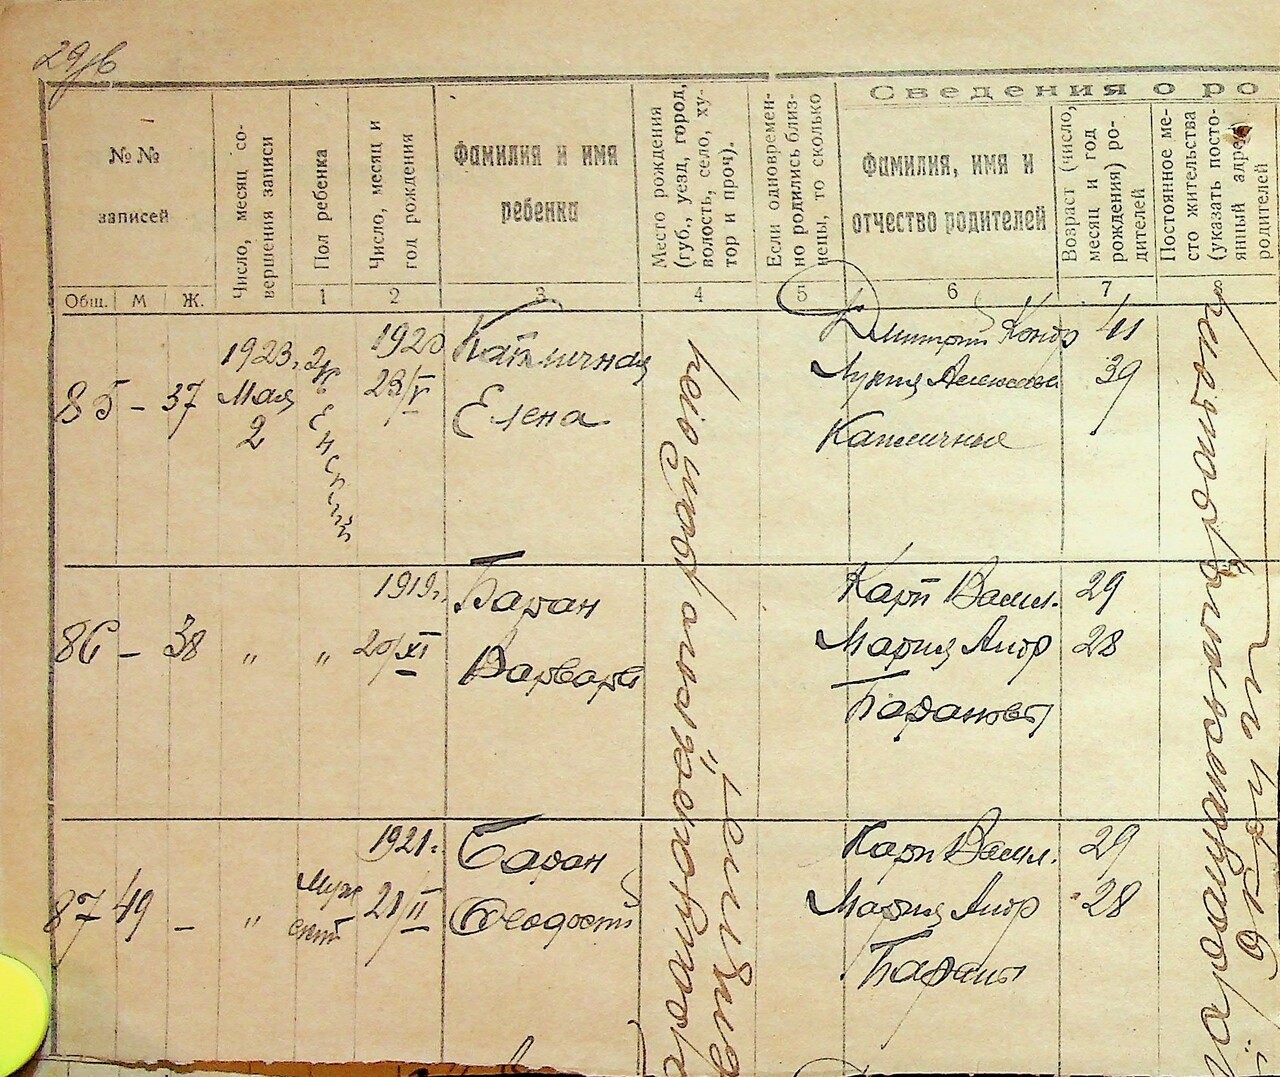 29 в
Сведения о ро
№№
записей
Число, месяц со-
вершения записи
Пол ребенка
Число, месяц и
год рождения
Фамилия и имя
ребенка
Место рождения
(губ., уезд, город,
волость, село, ху-
тор и проч).
Если одновремен-
но родились близ-
нецы, то сколько
Фамилия, имя и
отчество родителей
Возраст (число,
месяц и год
рождения) ро-
дителей
Постоянное ме-
сто жительства
(указать посто-
янный адрес
родителей
Общ. М Ж. 1 2 3 4 5 6 7 8
85 - 37
1923.
Мая
2
Женский
1920
23/V
Капличная
Елена
Дмитрий Кондр
Лукия Алексеевна
Капличные
41
39
86 - 38 " "
1919г.
20/XI
Баран
Варвара
Карп Васил.
Мария Анор
Барановы
29
28
87 49 - "
Муж
ской
1921.
21/II
Баран
Феодосий
Карп Васил.
Мария Анор
Бараны
29
28